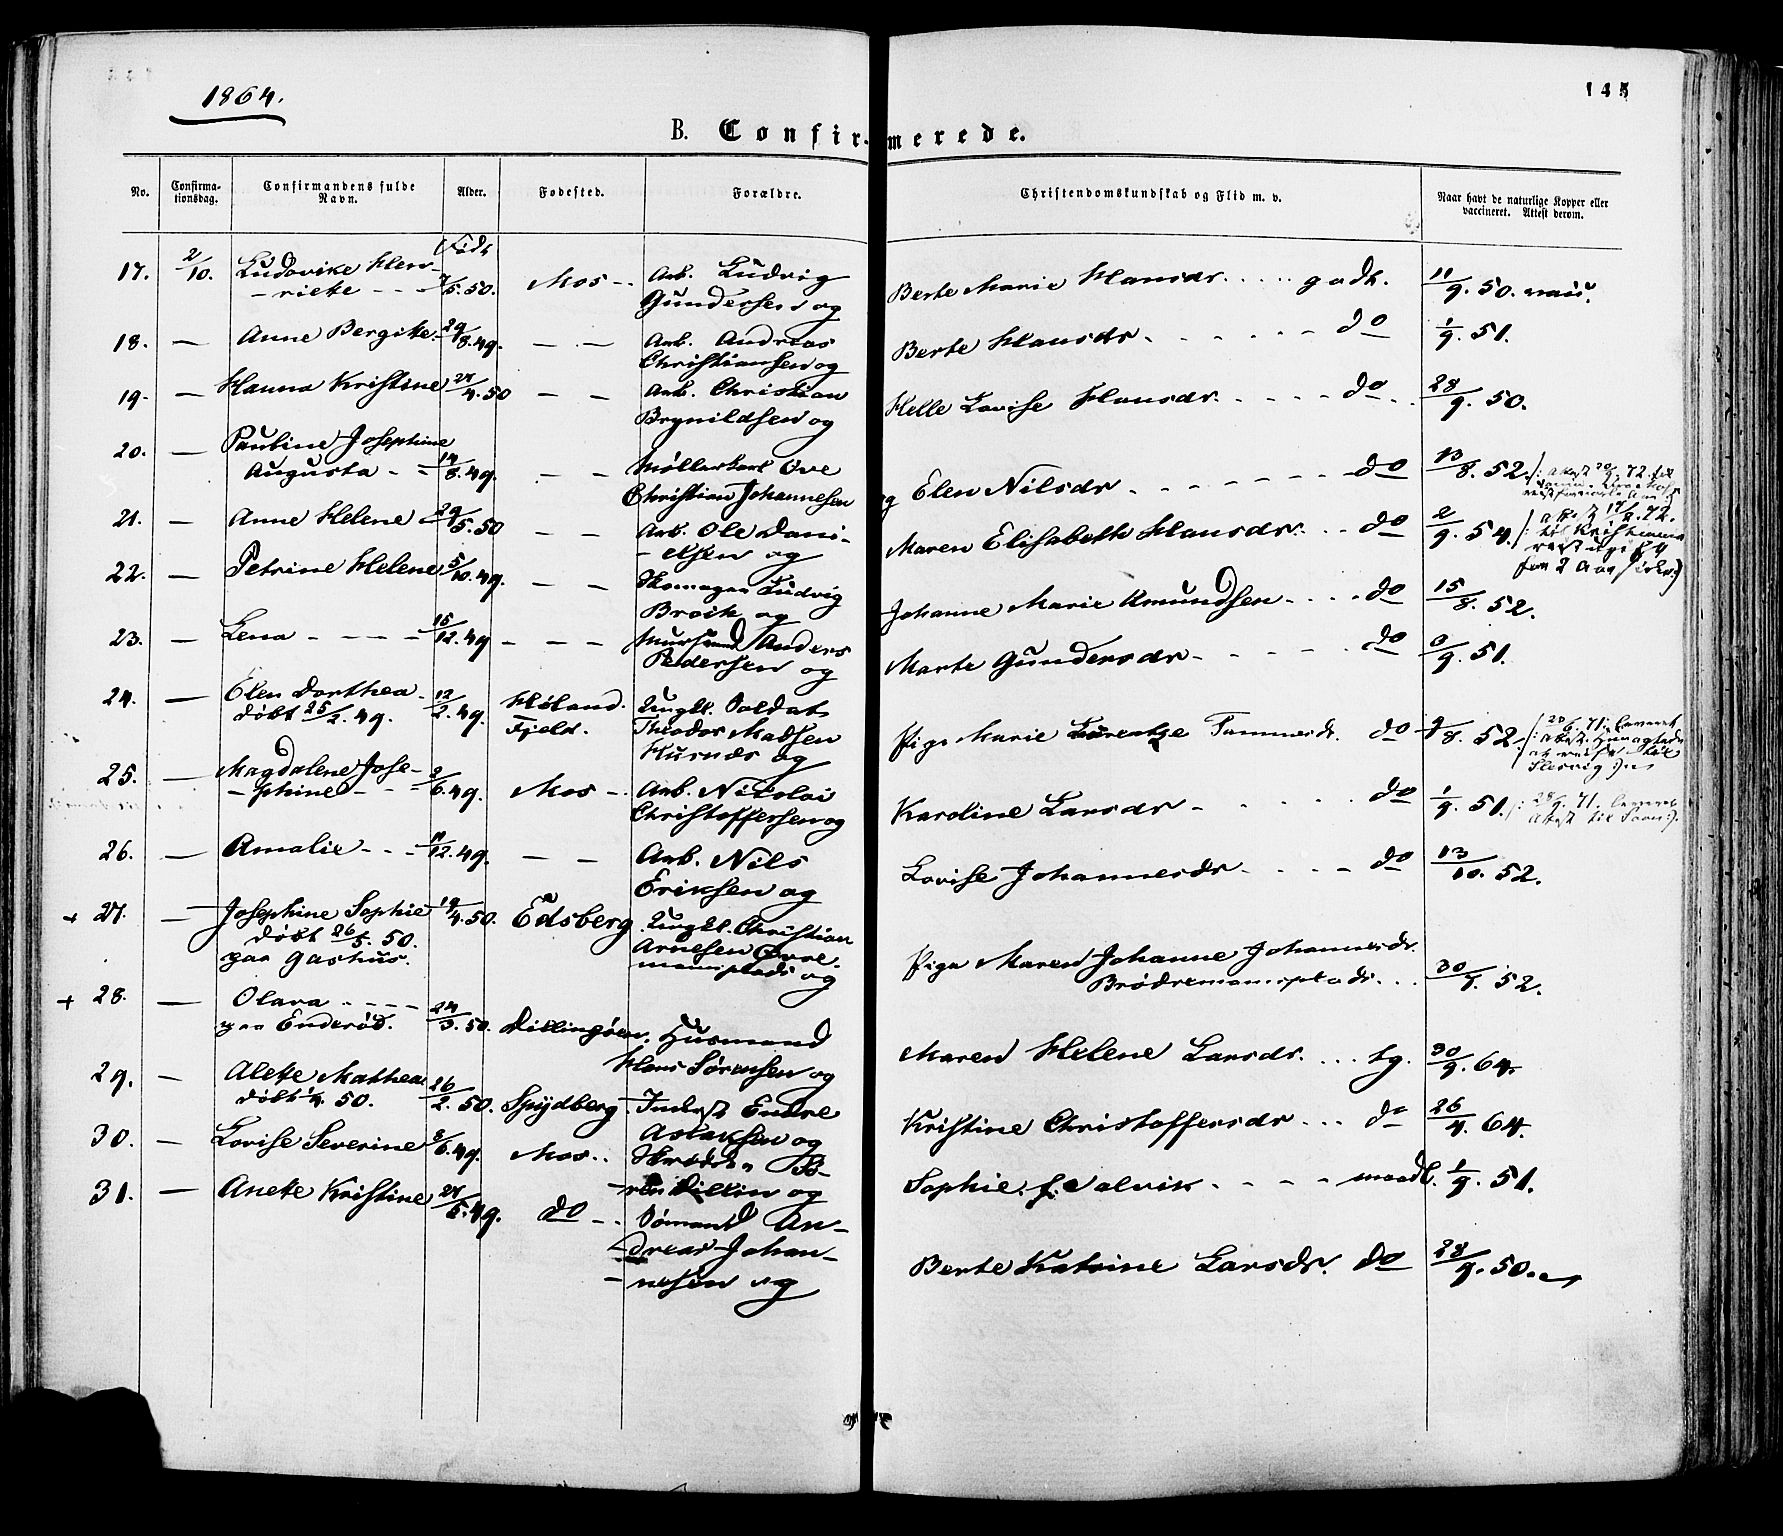 1864.
145
B. Confirmerede.
No.
Confirmationsdag.
Confirmandens fulde Navn.
Alder.
Fødested.
Forældre.
Christendomskundskab og Flid m. v.
Naar havt de naturlige Kopper eller vaccineret. Attest derom.
Født
17. 2/10. Ludovike Hen- Mos - Arb. Ludvig
- riette - - 7/5.50. Gundersen og Berte Marie Hansdr. . . . . godt. 11/9. 50.
18. — Anne Bergitte 29/8.49. — — Arb. Andreas
Christiansen og Berte Hansdr - - - - - do 1/9. 51.
19. — Hanna Kristine 27/4.50 — — Arb. Christian
Brynildsen og Helle Lovise Hansdr. - - - - do - . 28/9. 50.
20. — Pauline Josephine
Augusta - - 14/8.49. — — Møllerkarl Ove
Christian Johannesen og Elen Nilsdr - - - - - - do 13/8. 52.
21. — Anne Helene - 29/5.50 — — Arb. Ole Dani-
- elsen og Maren Elisabeth Hansdr. . . do 2/9. 54.
22. — Petrine Helene 5/10.49. — — Skomager Ludvig
Broch og Johanne Marie Amundsen - . . . do 15/8. 52.
23. — Lena - - - - 15/12.49 - - - Mursvend Anders
Pedersen og Marte Gundersdr - - - - - do 9. 51.
24. — Elen Dorthea - 12/2.49. Høland. Ungkl. Soldat
døbt 25/2.49. Fjeld. Theodor Madsen
og Pige Marie Lorentze do 8. 52.
25. — Magdalene Jose-
- phine - - - 2/6.49. Mos - . Arb. Nikolai
Christoffersen og Karoline Larsdr - - - - . do 1/9. 51.
26. — Amalie - - - 11/12.49. — — Arb. Nils
Eriksen og Lovise Johannesdr - - - - do 13/10. 52.
+ 27. — Josephine Sophie 19/4.50. Edsberg Ungkl. Christian
døbt 26/5. 50. Arnesen
paa Gashus. og Pige Maren Johanne Johannesdr.
Brødremannsplads . . . 52.
+ 28. — Olava - - - -
paa Enderød. 24/3.50. Dillingøen. Husmand
Hans Sørensen og Maren Helene Larsdr. . . . tg. 30/9. 64.
29. — Alette Mathea 26/2.50. Spydberg. Inderst Endre
døbt 1/4. 50. Aslaksen og Kristine Christoffersdr . . . do 26/4. 64.
30. — Lovise Severine 8/6.49. Mos . . Skrædder
og Sophie f. Salvik - - - - maadl. 1/9. 51.
31. — Anette Kristine 27/5.49. do - . Sømand An-
- dreas Johan-
- nesen og Berte Katrine Larsdr. do 28/9. 50.